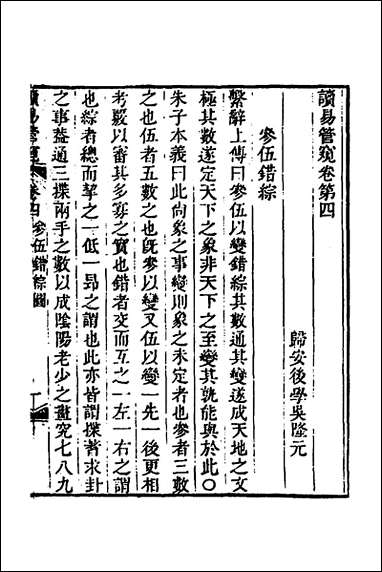 讀易管窺卷第四
歸安後學吳隆元
參伍錯綜
繫辭上傳曰參伍以變錯綜其數通其變遂成天地之文
極其數遂定天下之象非天下之至變其孰能與於此〇
朱子本義曰此尚象之事變則象之未定者也參者三數
之也伍者五數之也旣參以變又伍以變一先一後更相
考覈以審其多寡之實也錯者交而互之一左一右之謂
也綜者總而挈之一低一昂之謂也此亦皆謂揲蓍求卦
之事葢通三揲兩手之數以成陰陽老少之畫究七八九
讀易管窺 卷四 參伍錯綜圖